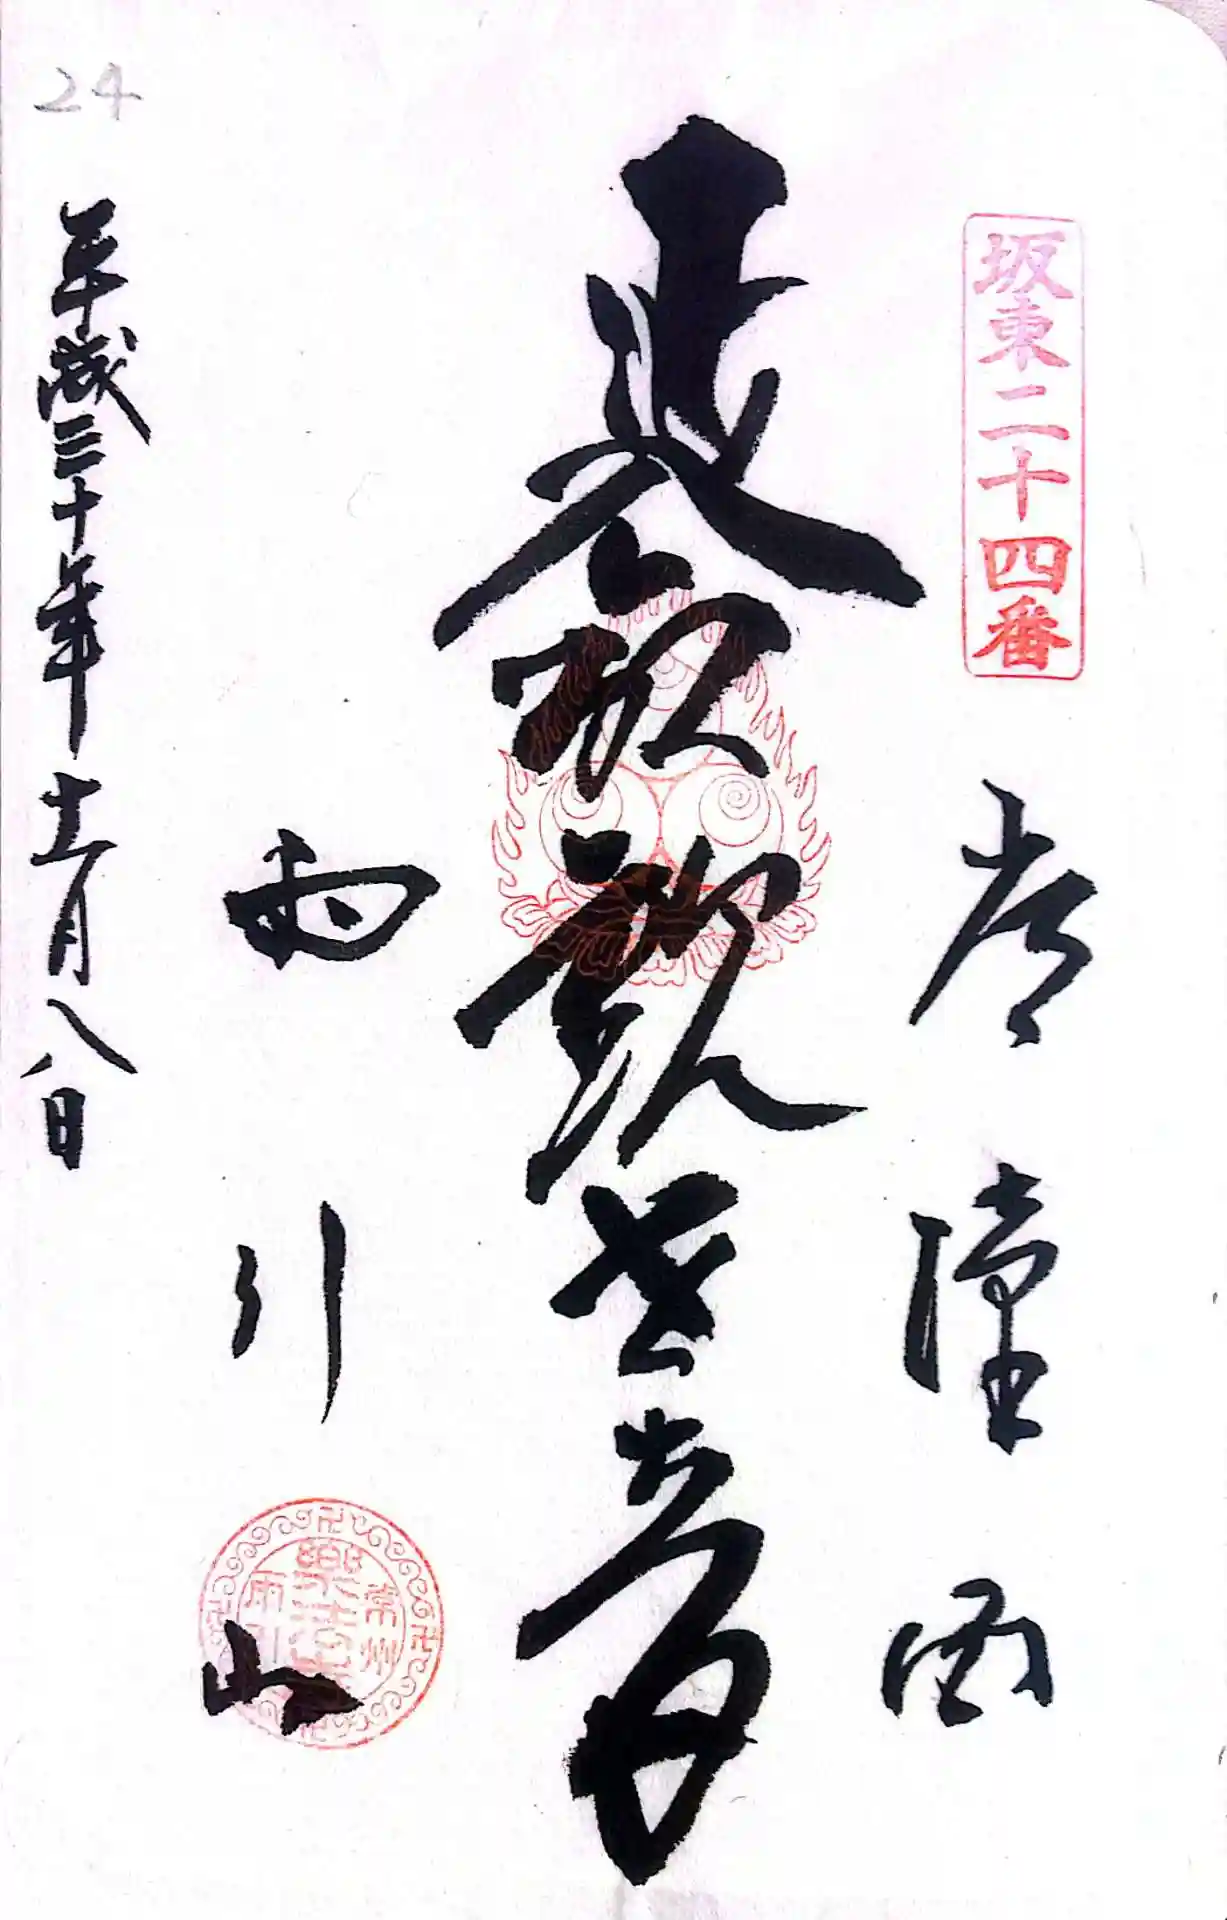 24
坂東二十四番
常陸国
延命観世音
雨引山
常州
樂法寺
雨引
平成三十年十二月八日